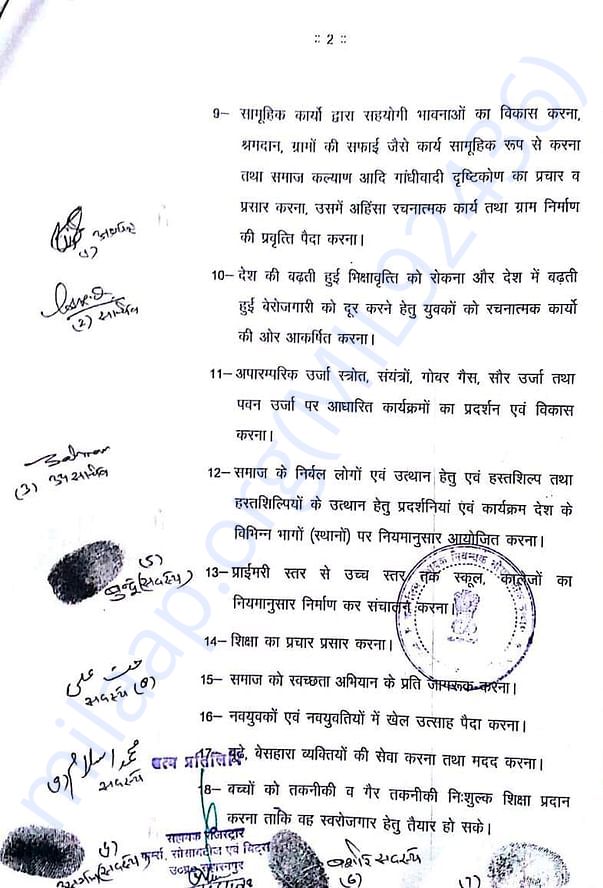 :: 2 ::
9– सामूहिक कार्यो द्वारा सहयोगी भावनाओं का विकास करना,
श्रमदान, ग्रामों की सफाई जैसे कार्य सामूहिक रूप से करना
तथा समाज कल्याण आदि गांधीवादी दृष्टिकोण का प्रचार व
प्रसार करना, उसमें अहिंसा रचनात्मक कार्य तथा ग्राम निर्माण
की प्रवृत्ति पैदा करना।
10– देश की बढ़ती हुई भिक्षावृत्ति को रोकना और देश में बढ़ती
हुई बेरोजगारी को दूर करने हेतु युवकों को रचनात्मक कार्यो
की ओर आकर्षित करना।
(2)
11– अपारम्परिक उर्जा स्त्रोत, संयंत्रों, गोबर गैस, सौर उर्जा तथा
पवन उर्जा पर आधारित कार्यक्रमों का प्रदर्शन एवं विकास
करना।
12– समाज के निर्बल लोगों एवं उत्थान हेतु एवं हस्तशिल्प तथा
हस्तशिल्पियों के उत्थान हेतु प्रदर्शनियां एवं कार्यक्रम देश के
विभिन्न भागों (स्थानों) पर नियमानुसार आयोजित करना।
(3)
(5)
बुन्दू (सदस्य)
13– प्राईमरी स्तर से उच्च स्तर तक स्कूल, कालेजों का
नियमानुसार निर्माण कर संचालन करना।
14– शिक्षा का प्रचार प्रसार करना।
सदस्य (8)
15– समाज को स्वच्छता अभियान के प्रति जागरूक करना।
16– नवयुवकों एवं नवयुवतियों में खेल उत्साह पैदा करना।
محمد اسلام
सदस्य
सत्य प्रतिलिपि
17– बूढ़े, बेसहारा व्यक्तियों की सेवा करना तथा मदद करना।
18– बच्चों को तकनीकी व गैर तकनीकी निःशुल्क शिक्षा प्रदान
करना ताकि वह स्वरोजगार हेतु तैयार हो सके।
सहायक रजिस्ट्रार
फर्म्स, सोसाइटीज एवं चिट्स
उ०प्र० सहारनपुर
सदस्य
(6)
(7)
milaap.org(MIL92436)